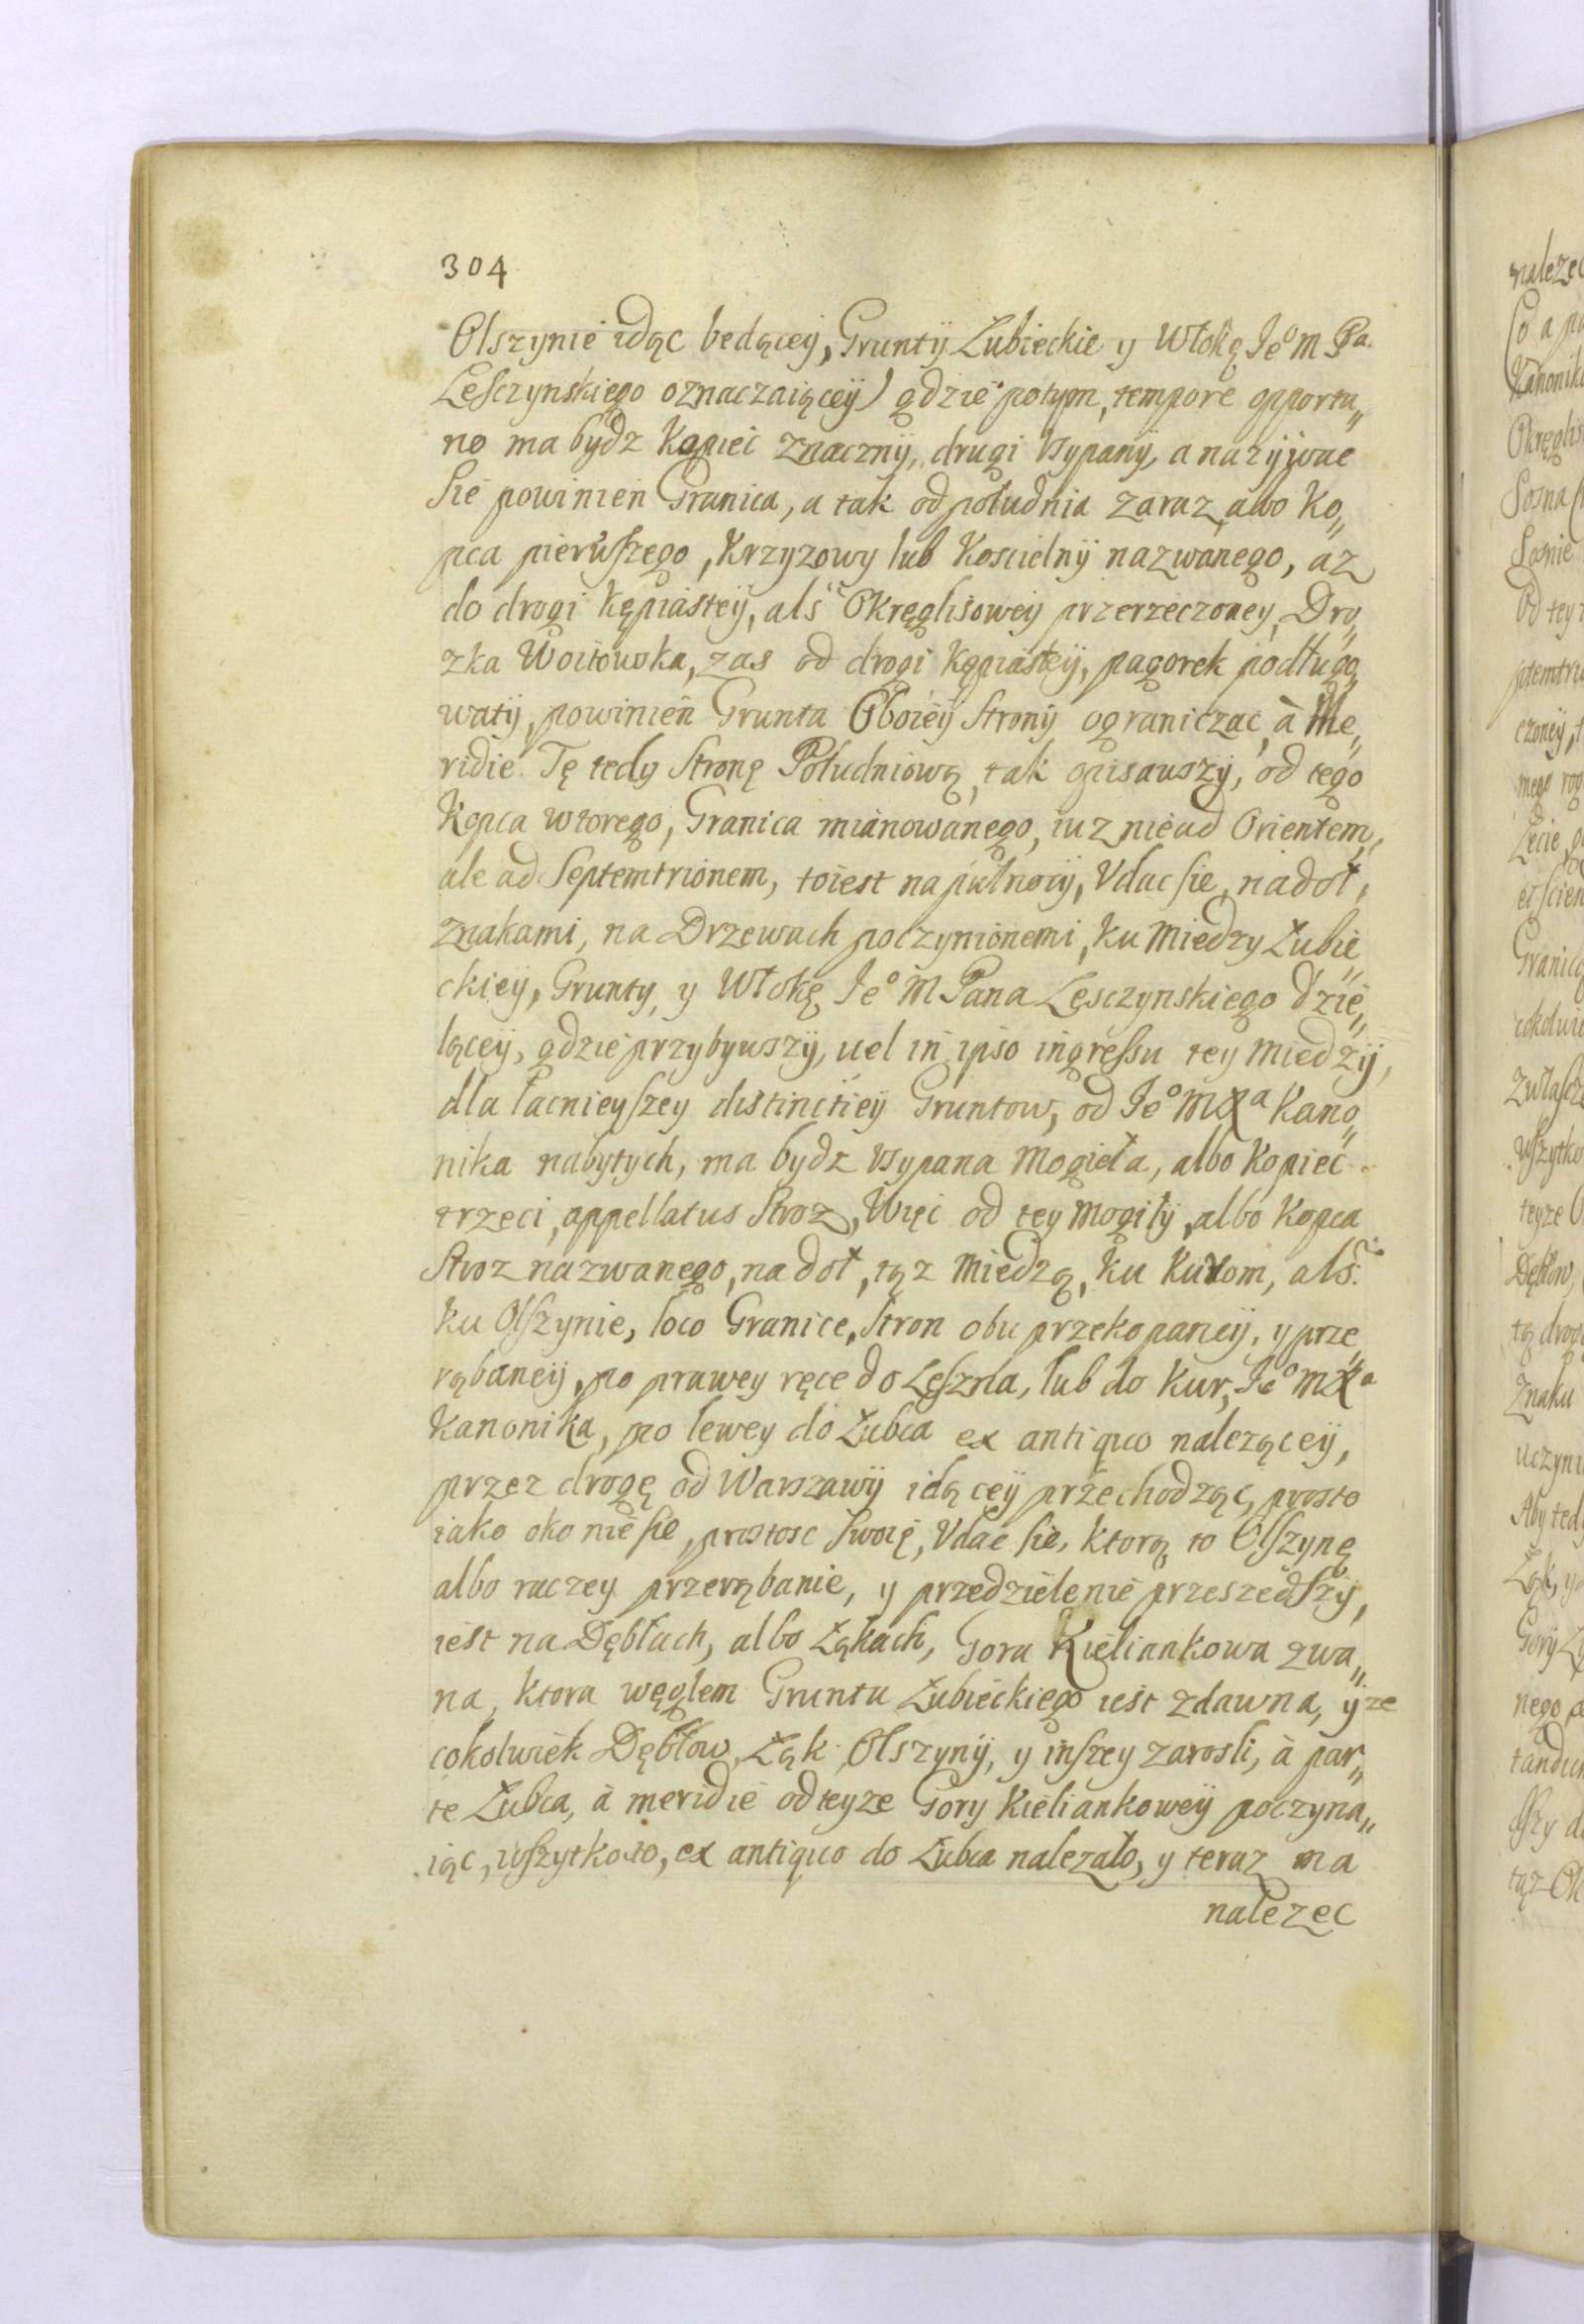 304
Olszynie idąc bedącey, Grunty Łubieckie y Włokę Jeº M Pa.
Lesczynskiego oznaczaiącey) gdzie potym, tempore opportu„
no ma bydz Kopiec znaczny, drugi vsypany, a nazywac
sie powinien Granica, a tak od południa zaraz, abo Ko„
pca pierwszego, Krzyzowy lub Koscielny nazwanego, az
do drogi Kępiastey, als Okręglisowey przerzeczoney, Dro„
zka Woitowska, zas od drogi Kępiastey, pagorek podługo„
waty, powinien Grunta Oboiey strony ograniczac, à Me„
ridie. Tę tedy stronę Południową, tak opisawszy, od tego
Kopca wtorego, Granica mianowanego, iuz nie ad Orientem,
ale ad Septemtrionem, toiest na pułnocy, Vdac sie, nadoł,
znakami, na Drzewach poczynionemi, Ku Miedzy Łubie„
ckiey, Grunty, y Włokę Jeº M Pana Lęsczynskiego dzie„
lącey, gdzie przybywszy, uel in ipso ingressu tey miedzy,
dla łacnieyszey distinctiey Gruntow, od Jeº M X a Kano„
nika nabytych, ma bydz vsypana Mogieła, albo Kopiec
trzeci, appellatus Stroz, Więc od tey Mogiły, albo Kopca
Stroz nazwanego, na doł, tąz Miedzą, Ku Kurom, als:
Ku Olszynie, loco Granice, stron obu przekopaney, y prze„
rąbaney, po prawey ręce do Leszna, lub do Kur, Jeº M X a
Kanonika, po lewey do Łubca ex antiquo nalezącey,
przez drogę od Warszawy idącey przechodząc, prosto
iako oko niesie, prostosc swoię, Vdac sie, ktorą to Olszynę
albo raczey przerąbanie, y przedzielenie przeszedszy,
iest na Dębłach, albo Łąkach, Gora Kieliankowa zwa„
na, Ktora węglem Gruntu Łubieckiego iest zdawna, y ze
cokolwiek Dębłow, Łąk, Olszyny, y inszey zarosli, à par„
te Łubca, à meridie od teyze Gory Kieliankowey poczyna„
iąc, wszytko to, ex antiquo do Łubca nalezało, y teraz ma
nalezec